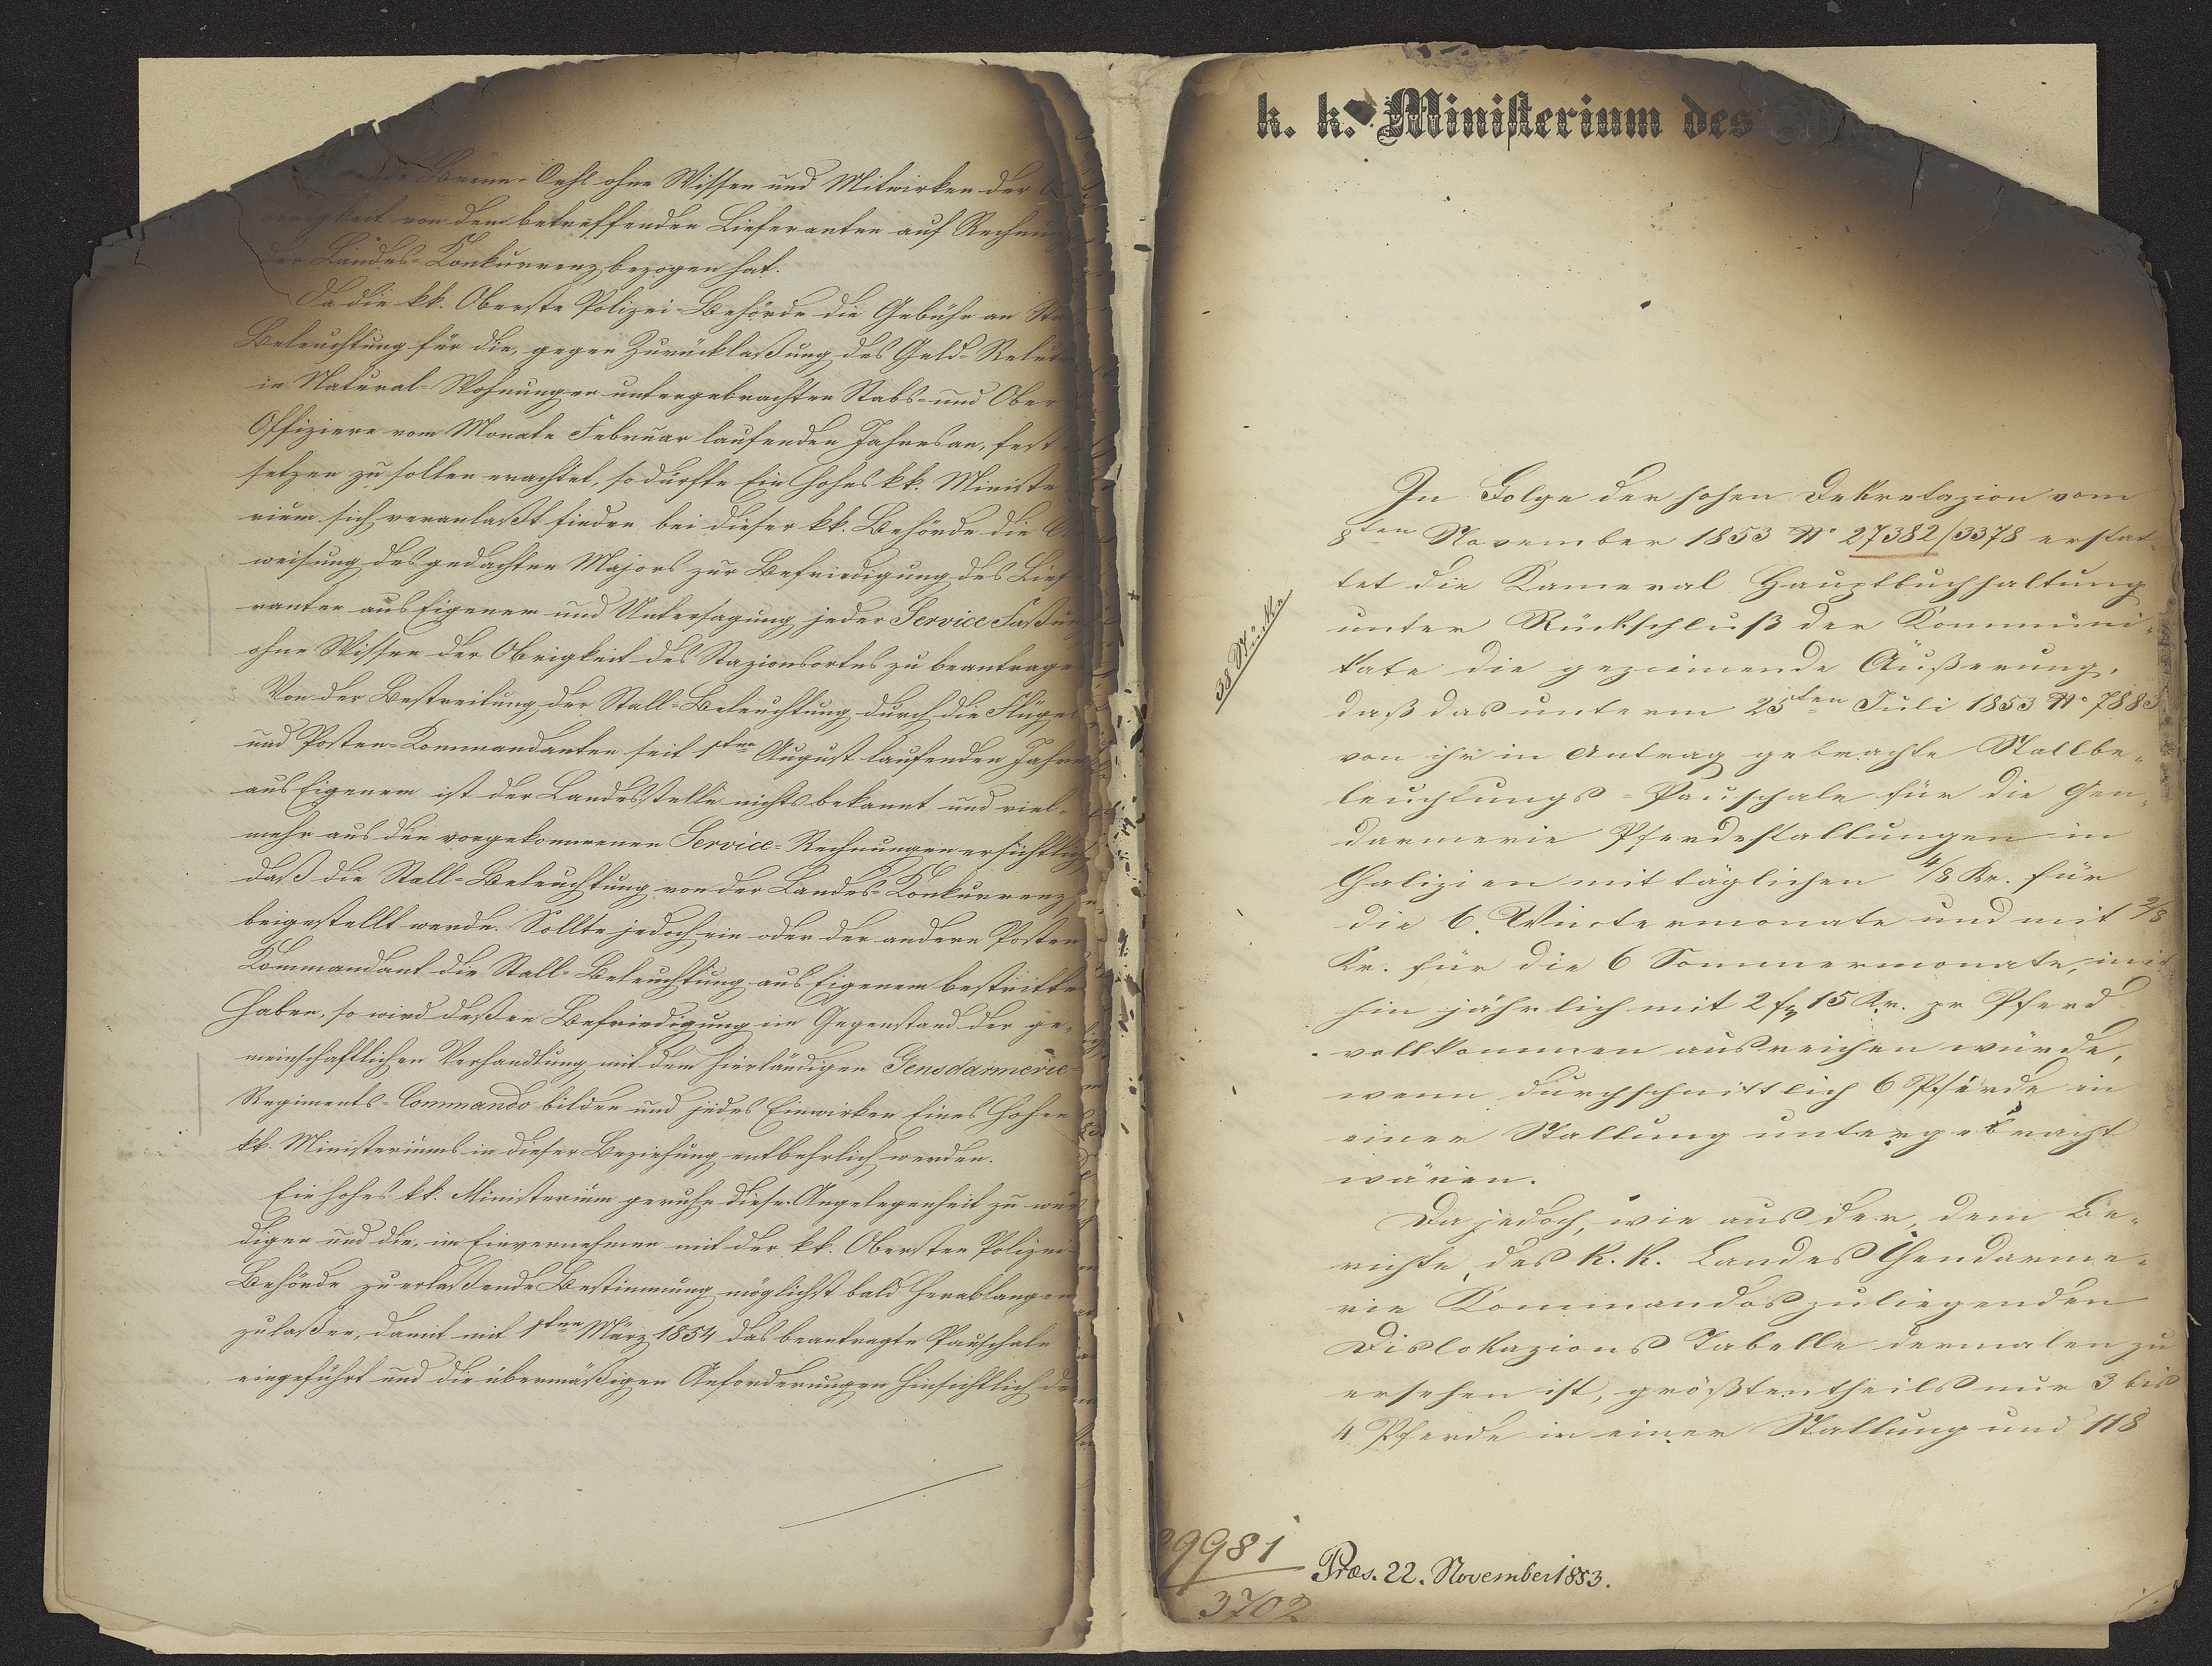 Brenn-Oehl ohne Wissen und Mitwirken der
obrigkeit von dem betreffenden Lieferanten auf Rechnung
der Landes-Konkurrenz bezogen hat.
Da die kk. Oberste Polizei-Behörde die Gebühr an
Beleuchtung für die, gegen Zurücklaßung des Geld-Relut
in Natural-Wohnungen untergebrachten Stabs- und Ober
Offiziere vom Monate Februar laufenden Jahres an, fest
setzen zu sollen erachtet, so dürfte Ein hohes kk. Ministe
rium sich veranlaßt finden bei dieser kk. Behörde die
weisung des gedachten Majors zur Befriedigung des Lief
ranten aus Eigenem und Untersagung jeder Service Faßun
ohne Wissen der Obrigkeit des Stazionsortes zu beantrage
Von der Bestreitung der Stall-Beleuchtung durch die Flügel
und Posten-Kommandanten seit 1ten August laufenden Jahre
aus Eigenem ist der Landesstelle nichts bekannt und viel-
mehr aus den vorgekommenen Service-Rechnungen ersichtlich,
daß die Stall-Beleuchtung von der Landes-Konkurrenz
beigestellt werde. Sollte jedoch ein oder der andere Posten
Kommandant die Stall-Beleuchtung aus Eigenem bestritte
haben, so wird deßen Befriedigung ein Gegenstand der ge-
meinschaftlichen Verhandlung mit dem hierländigen Gensdarmerie-
Regiments-Commando bilden und jedes Einwirken Eines hohen
kk. Ministeriums in dieser Beziehung entbehrlich werden.
Ein hohes kk. Ministerium geruhe diese Angelegenheit zu wür
digen und die, im Einvernehmen mit der kk. Obersten Polizei-
Behörde zu erlaßende Bestimmung möglichst bald herablangen
zu laßen, damit mit 1ten März 1854 das beantragte Pauschale
eingeführt und die übermäßigen Anforderungen hinsichtlich de
k. k. Ministerium des
In Folge der hohen Dekretazion vom
8ten November 1853 No 27382/3378 erstat-
tet die Kameral Hauptbuchhaltung
unter Rückschluß der Kommuni-
kate die geziemende Äußerung,
daß das unterm 25ten Juli 1853 No 7883
von ihr in Antrag gebrachte Stallbe-
leuchtungs-Pauschale für die Gen-
darmerie Pferdestallungen in
Galizien mit täglichen 4/8 Kr. für
die 6 Wintermonate und mit 2/8
Kr. für die 6 Sommermonate, mit
hin jährlich mit 2 f 15 Kr. pr Pferd
vollkommen ausreichen würde,
wenn durchschnittlich 6 Pferde in
einer Stallung untergebracht
wären.
Da jedoch, wie aus der, dem Be-
richte des k. k. Landes Gendarme-
rie Kommandos zuliegenden
Dislokazions Tabelle dermalen zu
ersehen ist, größtentheils nur 3 bis
4 Pferde in einer Stallung und 118
29981
3702
Præs. 22. November 1853.